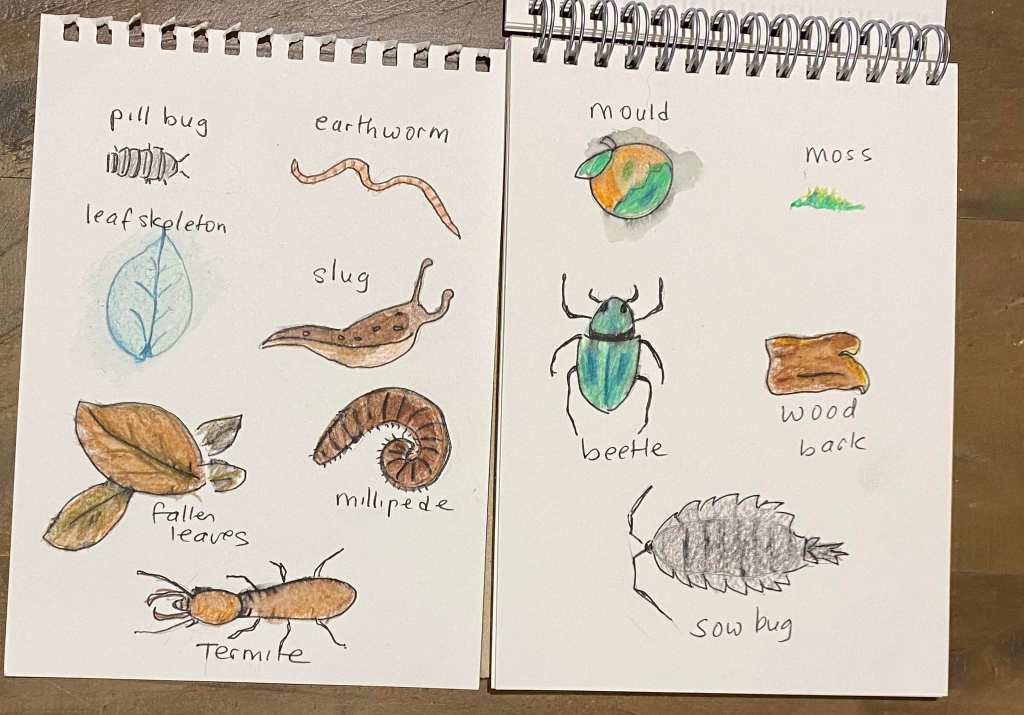 pill bug
earthworm
leaf skeleton
slug
millipede
fallen
leaves
Termite
mould
moss
beetle
wood
bark
sow bug